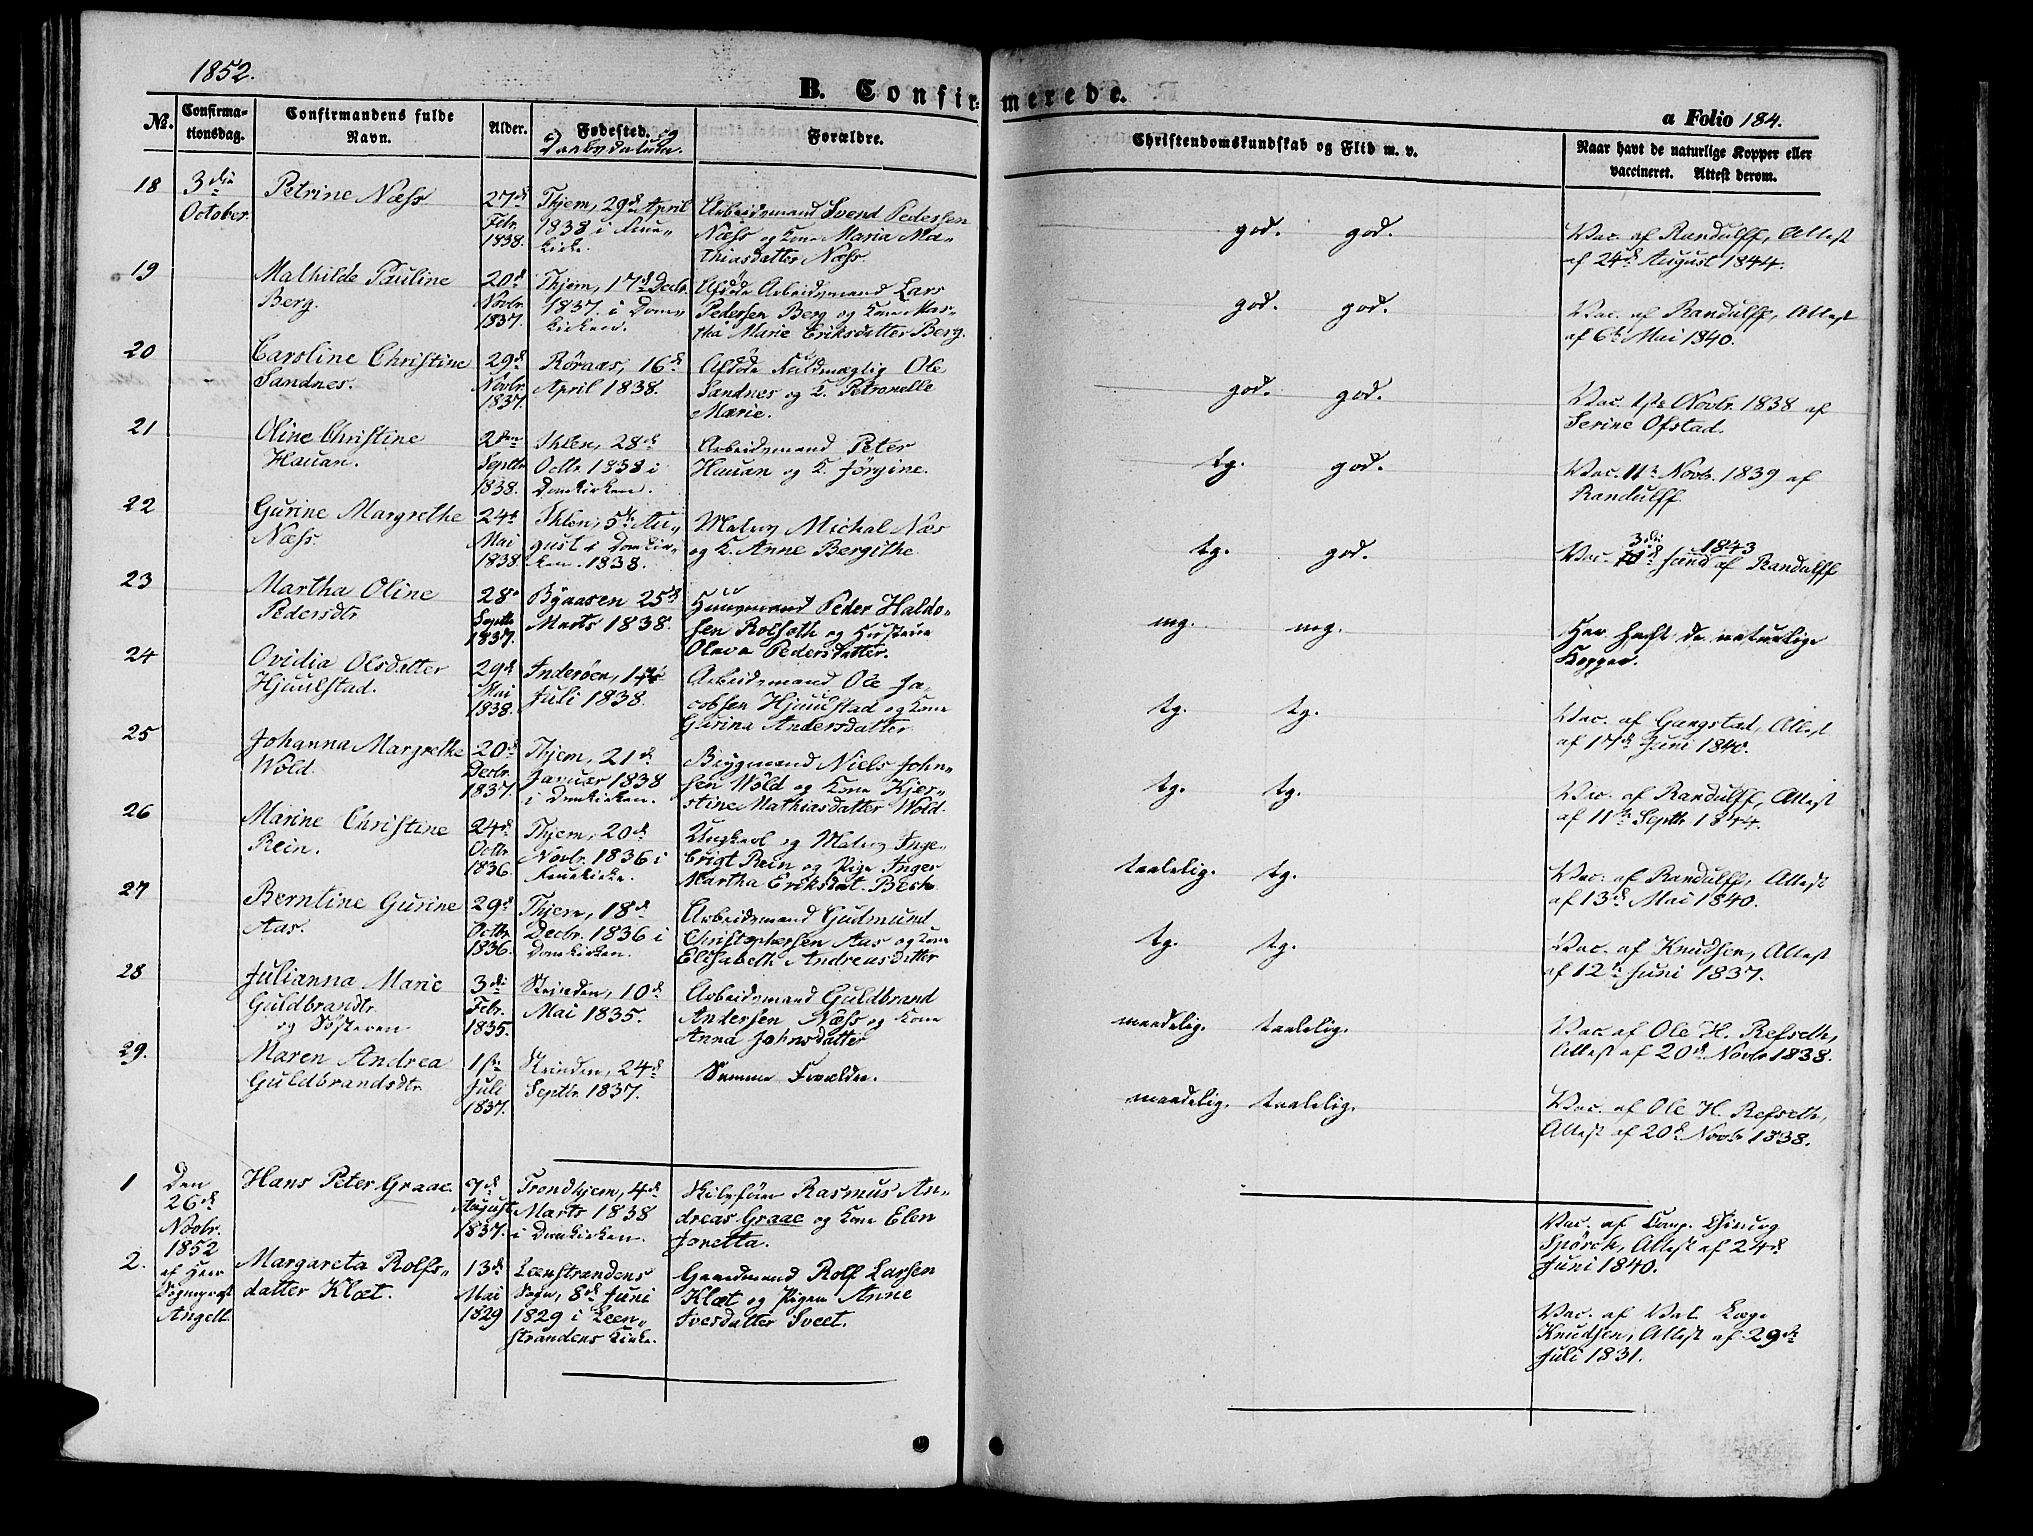 1852.
B. Confirmerede.
a Folio 184.
№.
Confirma-
tionsdag.
Confirmandens fulde
Navn.
Alder.
Fødested.
og
Daabsdatum.
Forældre.
Christendomskundskab og Flid m. v.
Naar havt de naturlige Kopper eller
vaccineret. Attest derom.
18
3die
October.
Petrine Næss.
27de
Febr.
1838.
Thjem, 29de April
1838 i Frue-
kirke.
Arbeidsmand Svend Pedersen
Næss og Kone Maria Ma-
thiasdatter Næss.
god. god.
Vac. af Randulff, Attest
af 24de August 1844.
19
Mathilde Pauline
Berg.
20de
Novbr.
1837.
Thjem, 17de Decbr.
1837. i Dom-
kirken.
Afdøde Arbeidsmand Lars
Pedersen Berg og Kone Mar-
tha Marie Eriksdatter Berg.
god. god.
Vac. af Randulff, Attest
af 6te Mai 1840.
20
Caroline Christine
Sandnes.
29de
Novbr.
1837.
Røraas, 16de
April 1838.
Afdøde Fuldmægtig Ole
Sandnes og K. Petronelle
Marie.
god. god.
Vac. 1ste Novbr. 1838 af
Serine Ofstad.
21
Oline Christine
Hauan.
2den
Septbr.
1838.
Ihlen, 28de
Octbr. 1838 i
Domkirken.
Arbeidsmand Peter
Hauan og K. Jørgine.
tg. god.
Vac. 11te Novbr. 1839 af
Randulff.
22
Gurine Margrethe
Næss.
24de
Mai
1838.
Ihlen, 5te Au-
gust i Domkir-
ken. 1838.
Matros Michal Næs
og K. Anne Bergithe
tg. god.
3die 1843
Vac. 10de Juni af Randulff
23
Martha Oline
Pedersdtr
28de
Septbr
1837.
Byaasen 25de
Marts 1838.
Huusmand Peder Haldo-
sen Rolseth og Hustrue
Olava Pedersdatter.
mg. mg.
Har havt de naturlige
Kopper.
24
Ovidia Olsdatter
Hjuulstad.
29de
Mai
1838.
Inderøen, 14de
Juli 1838.
Arbeidsmand Ole Ja-
cobsen Hjuulstad og Kone
Gurina Andersdatter
tg. tg.
Vac. af Gangstad, Attest
af 17de Juni 1840.
25
Johanna Margrethe
Wold.
20de
Decbr.
1837.
Thjem, 21de
Januar 1838
i Domkirken.
Brygmand Niels John-
sen Wold og Kone Kjer-
stine Mathiasdatter Wold.
tg. tg.
Vac. af Randulff, Attest
af 11te Septbr 1844.
26
Marine Christine
Rein.
24de
Octbr.
1836.
Thjem, 20de
Novbr. 1836 i
Fruekirke.
Ungkarl og Matros Inge-
brigt Rein og Pige Inger
Martha Eriksdat. Beck.
taalelig. tg.
Vac. af Randulff, Attest
af 13de Mai 1840.
27
Berntine Gurine
Aas.
29de
Octbr.
1836.
Thjem, 18de
Decbr. 1836 i
Domkirken.
Arbeidsmand Gudmund
Christophersen Aas og Kone
Elisabeth Andreasdatter
tg. tg.
Vac. af Knudsen, Attest
af 12te Juni 1837.
28
Julianna Marie
Guldbrandtr.
og Søsteren
3die
Febr.
1835.
Strinden, 10de
Mai 1835.
Arbeidsmand Guldbrand
Andersen Næss og Kone
Anna Johnsdatter
maadelig. taalelig.
Vac. af Ole H. Refseth,
Attest af 20de Novbr 1838.
29.
Maren Andrea
Guldbrandsdtr
1ste
Juli
1837.
Strinden, 24de
Septbr. 1837.
Samme Forældre.
maadelig. taalelig.
Vac. af Ole H. Refseth,
Attest af 20de Novbr 1838.
1
Den
26de
Novbr.
1852
af Herr
Sogneprest
Angell.
Hans Peter Graae.
7de
August
1837.
Trondhjem, 4de
Marts 1838
i Domkirken.
Skibsfører Rasmus An-
dreas Graae og Kone Elen
Jonetta.
Vac. af Comp. Chirurg
Spörck, Attest af 24de
Juni 1840.
2.
Margareta Rolfs-
datter Klæt.
13de
Mai
1829
Leenstrandens
Sogn, 8de Juni
1829 i Leen-
strandens Kirke.
Gaardmand Rolf Larsen
Klæt og Pigen Anne
Ivesdatter Sveet.
Vac. af Vet. Læge
Knudsen, Attest af 29de
Juli 1831.